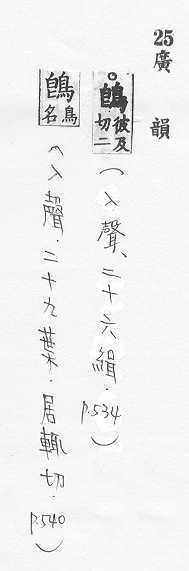 25 廣韻
○鵖彼及切二（入聲、二十六緝．p.534）
鵖鳥名（入聲．二十九葉．居輒切．p.540）